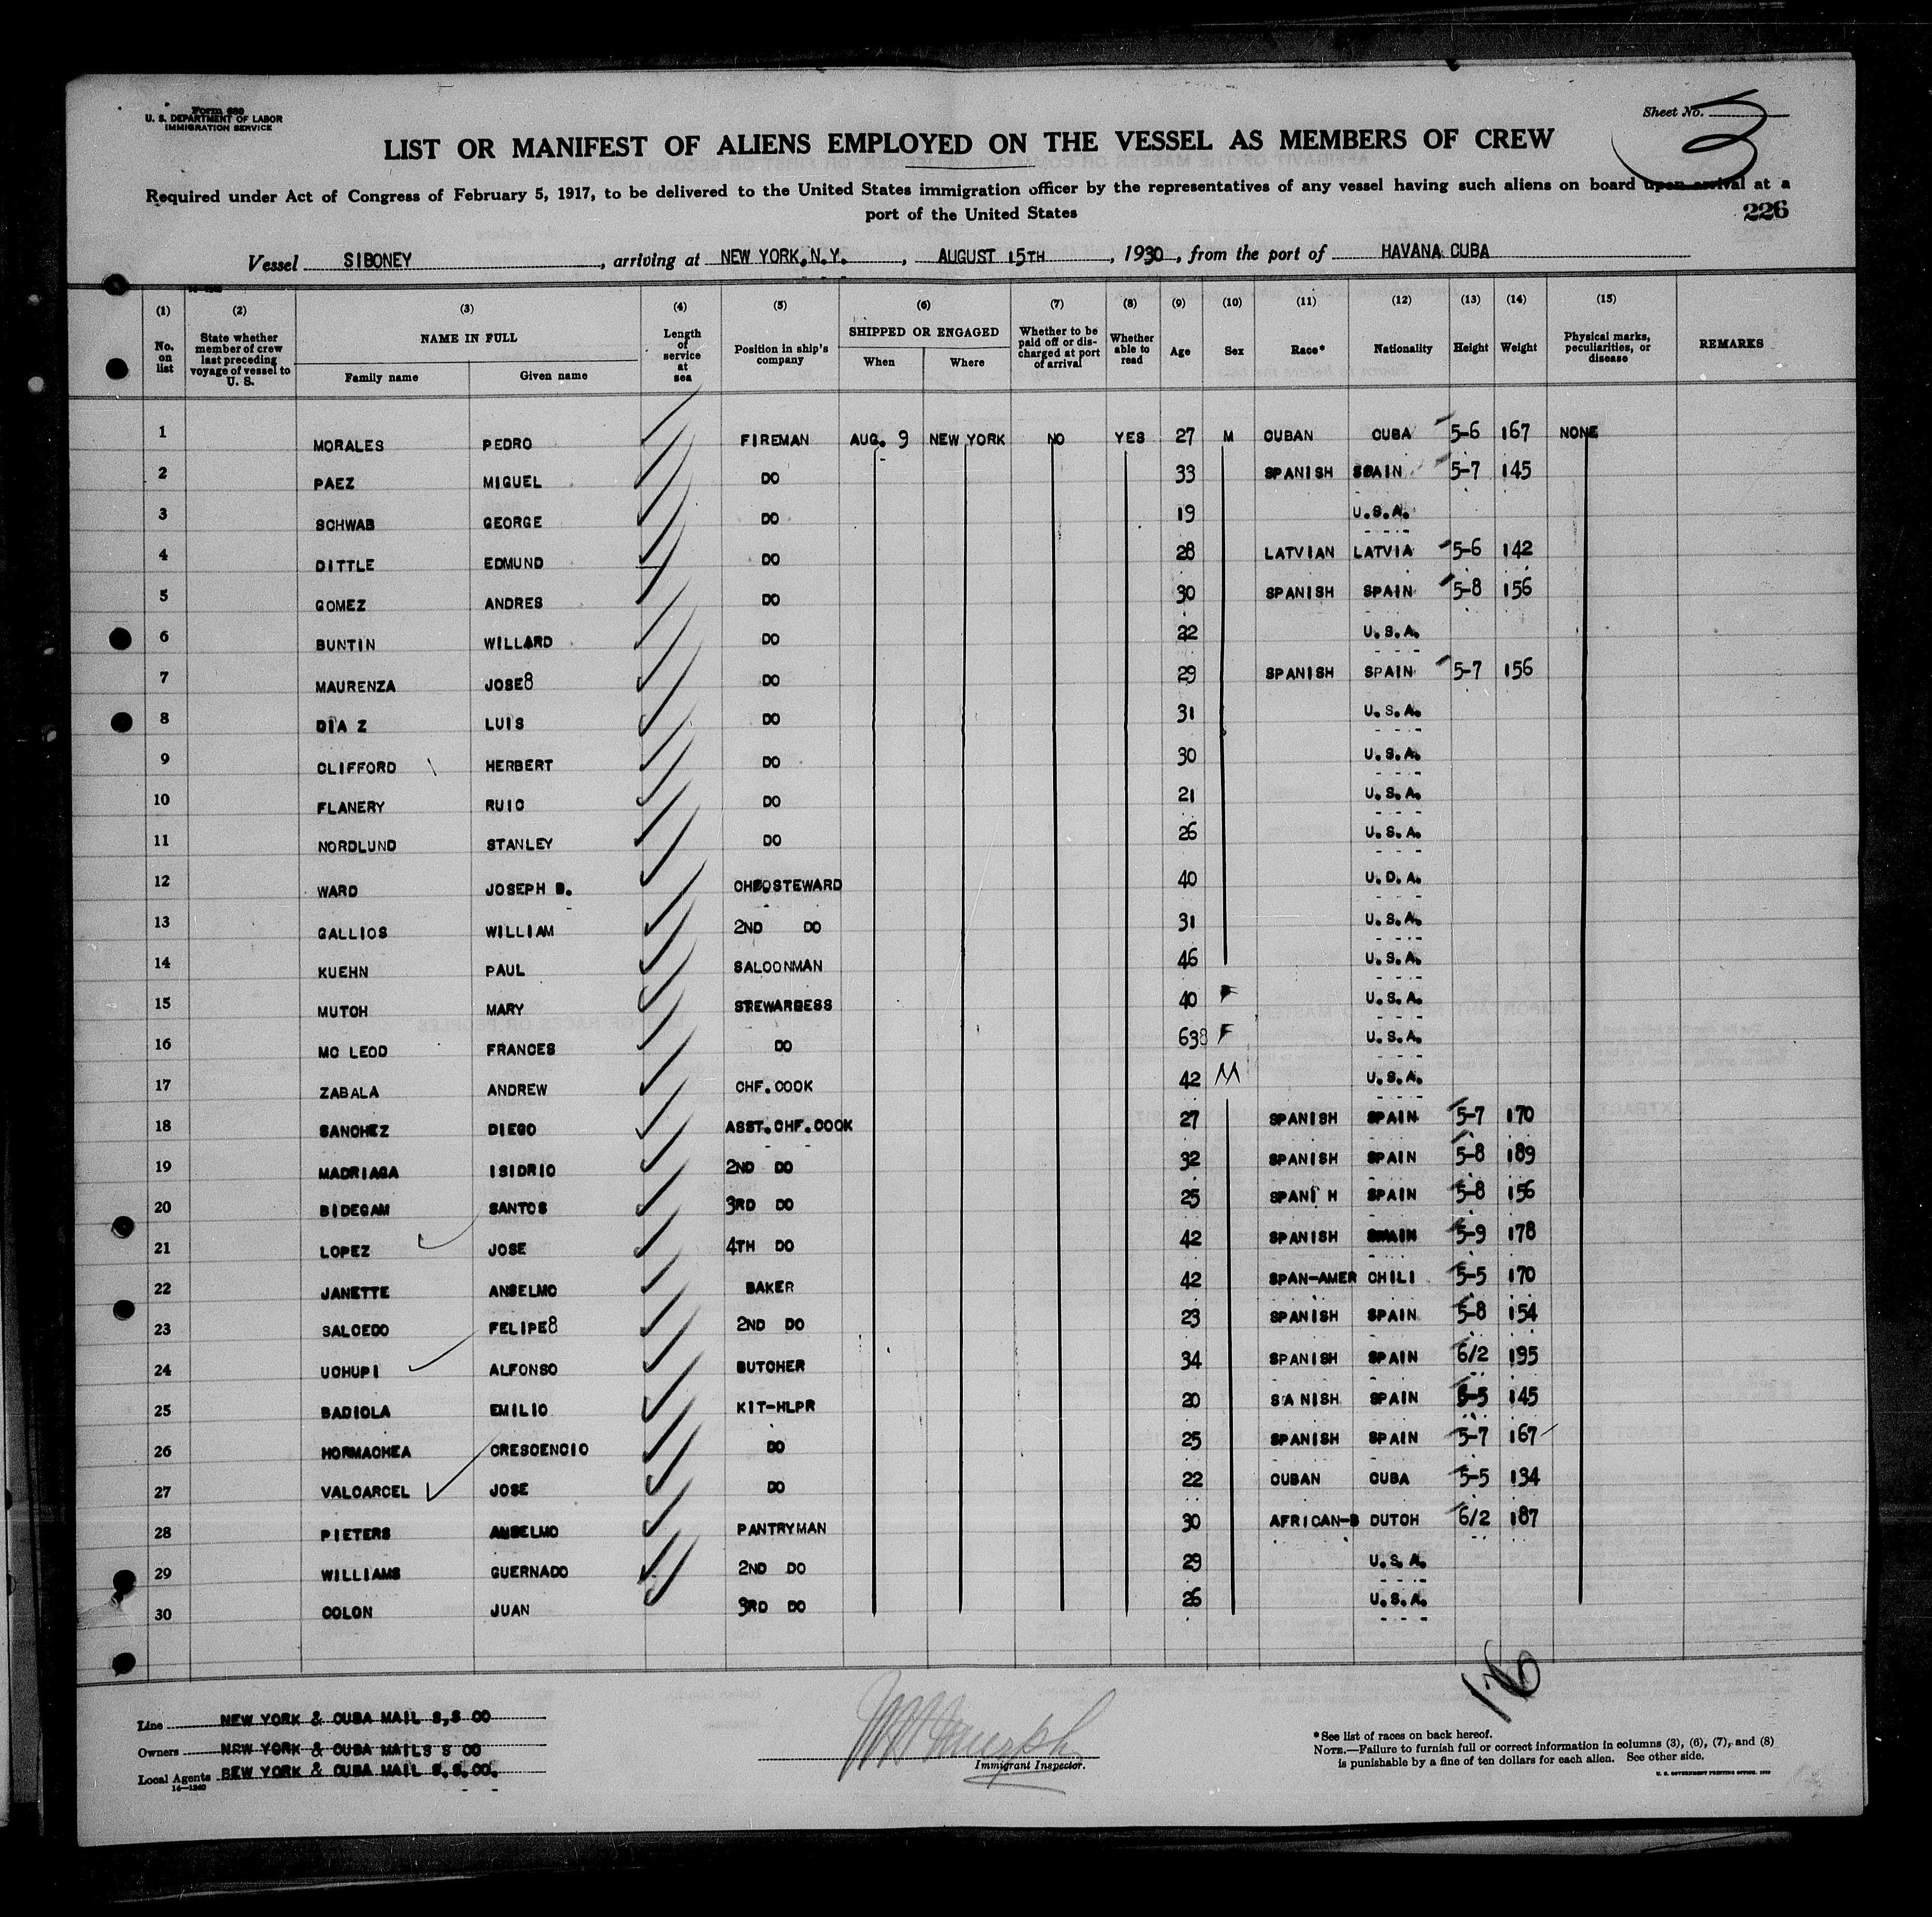 Form 680
U. S. DEPARTMENT OF LABOR
IMMIGRATION SERVICE
Sheet No. 3
LIST OR MANIFEST OF ALIENS EMPLOYED ON THE VESSEL AS MEMBERS OF CREW
Required under Act of Congress of February 5, 1917, to be delivered to the United States immigration officer by the representatives of any vessel having such aliens on board upon arrival at a
port of the United States
226
Vessel SIBONEY, arriving at NEW YORK, N.Y., AUGUST 15TH, 1930, from the port of HAVANA CUBA
(1) (2) (3) (4) (5) (6) (7) (8) (9) (10) (11) (12) (13) (14) (15)
No. on list State whether member of crew last preceding voyage of vessel to U. S. NAME IN FULL Family name Given name Length of service at sea Position in ship's company SHIPPED OR ENGAGED When Where Whether to be paid off or discharged at port of arrival Whether able to read Age Sex Race* Nationality Height Weight Physical marks, peculiarities, or disease REMARKS
1 MORALES PEDRO FIREMAN AUG. 9 NEW YORK NO YES 27 M CUBAN CUBA 5-6 167 NONE
2 PAEZ MIGUEL DO 33 SPANISH SPAIN 5-7 145
3 SCHWAB GEORGE DO 19 U.S.A.
4 DITTLE EDMUND DO 28 LATVIAN LATVIA 5-6 142
5 GOMEZ ANDRES DO 30 SPANISH SPAIN 5-8 156
6 BUNTIN WILLARD DO 22 U.S.A.
7 MAURENZA JOSE8 DO 29 SPANISH SPAIN 5-7 156
8 DIA Z LUIS DO 31 U.S.A.
9 CLIFFORD HERBERT DO 30 U.S.A.
10 FLANERY RUIC DO 21 U.S.A.
11 NORDLUND STANLEY DO 26 U.S.A.
12 WARD JOSEPH B. STEWARD 40 U.D.A.
13 GALLIOS WILLIAM 2ND DO 31 U.S.A.
14 KUEHN PAUL SALOONMAN 46 U.S.A.
15 MUTCH MARY STEWARDESS 40 F U.S.A.
16 MC LEOD FRANCES DO 638 F U.S.A.
17 ZABALA ANDREW CHF.COOK 42 M U.S.A.
18 SANCHEZ DIEGO ASST.CHF.COOK 27 SPANISH SPAIN 5-7 170
19 MADRIAGA ISIDRIO 2ND DO 32 SPANISH SPAIN 5-8 189
20 BIDEGAM SANTOS 3RD DO 25 SPANI H SPAIN 5-8 156
21 LOPEZ JOSE 4TH DO 42 SPANISH SPAIN 5-9 178
22 JANETTE ANSELMO BAKER 42 SPAN-AMER CHILI 5-5 170
23 SALCEDO FELIPE8 2ND DO 23 SPANISH SPAIN 5-8 154
24 UCHUPI ALFONSO BUTCHER 34 SPANISH SPAIN 6/2 195
25 BADIOLA EMILIO KIT-HLPR 20 SA NISH SPAIN 5-5 145
26 HORMACHEA CRESCENCIO DO 25 SPANISH SPAIN 5-7 167
27 VALCARCEL JOSE DO 22 CUBAN CUBA 5-5 134
28 PIETERS ANSELMO PANTRYMAN 30 AFRICAN-B DUTCH 6/2 187
29 WILLIAMS GUERNADO 2ND DO 29 U.S.A.
30 COLON JUAN 3RD DO 26 U.S.A.
16
Line NEW YORK & CUBA MAIL S,S CO
Owners NEW YORK & CUBA MAILS S CO
Local Agents BEW YORK & CUBA MAIL S.S.CO.
14—1240
Immigrant Inspector.
* See list of races on back hereof.
NOTE.—Failure to furnish full or correct information in columns (3), (6), (7), and (8)
is punishable by a fine of ten dollars for each alien. See other side.